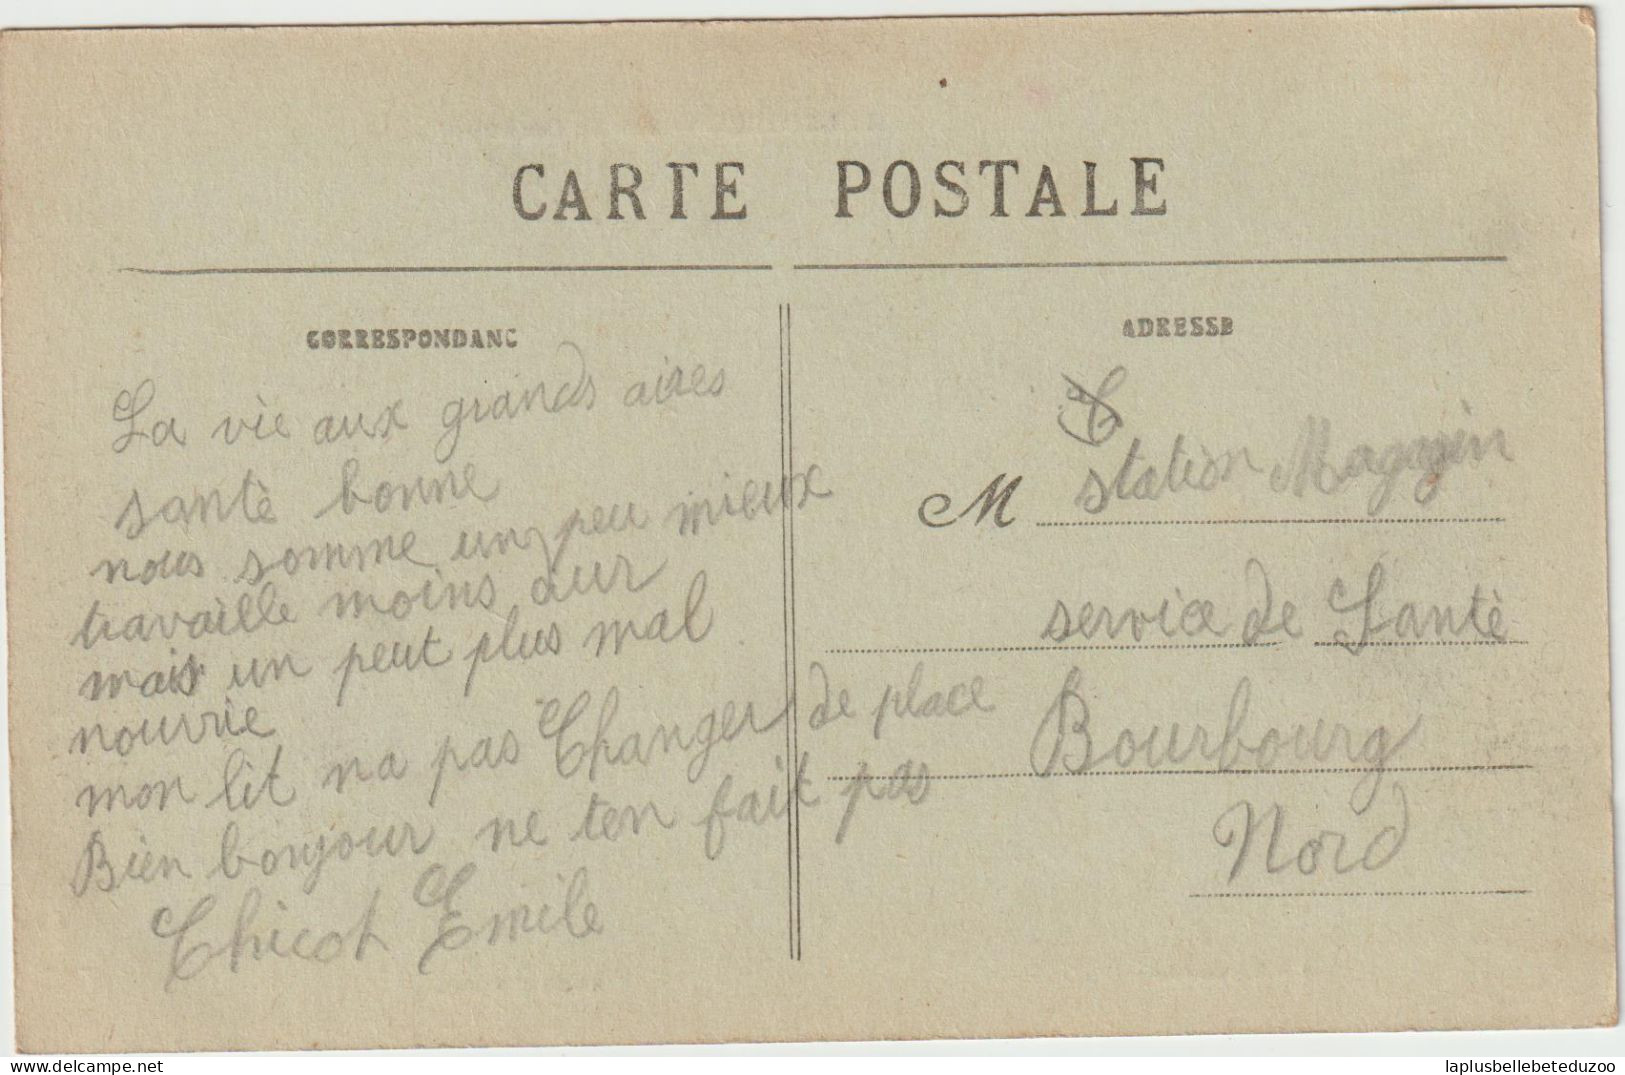 CARTE POSTALE
CORRESPONDANC
La vie aux grands aires
santè bonne
nous somme un peu mieux
travaille moins dur
mais un peut plus mal
nourrie
mon lit na pas Changer de place
Bien bonjour ne ten fait pas
Chicot Emile
ADRESSE
M station Magazin
service de Santè
Bourbourg
Nord
laplusbellebeteduzoo